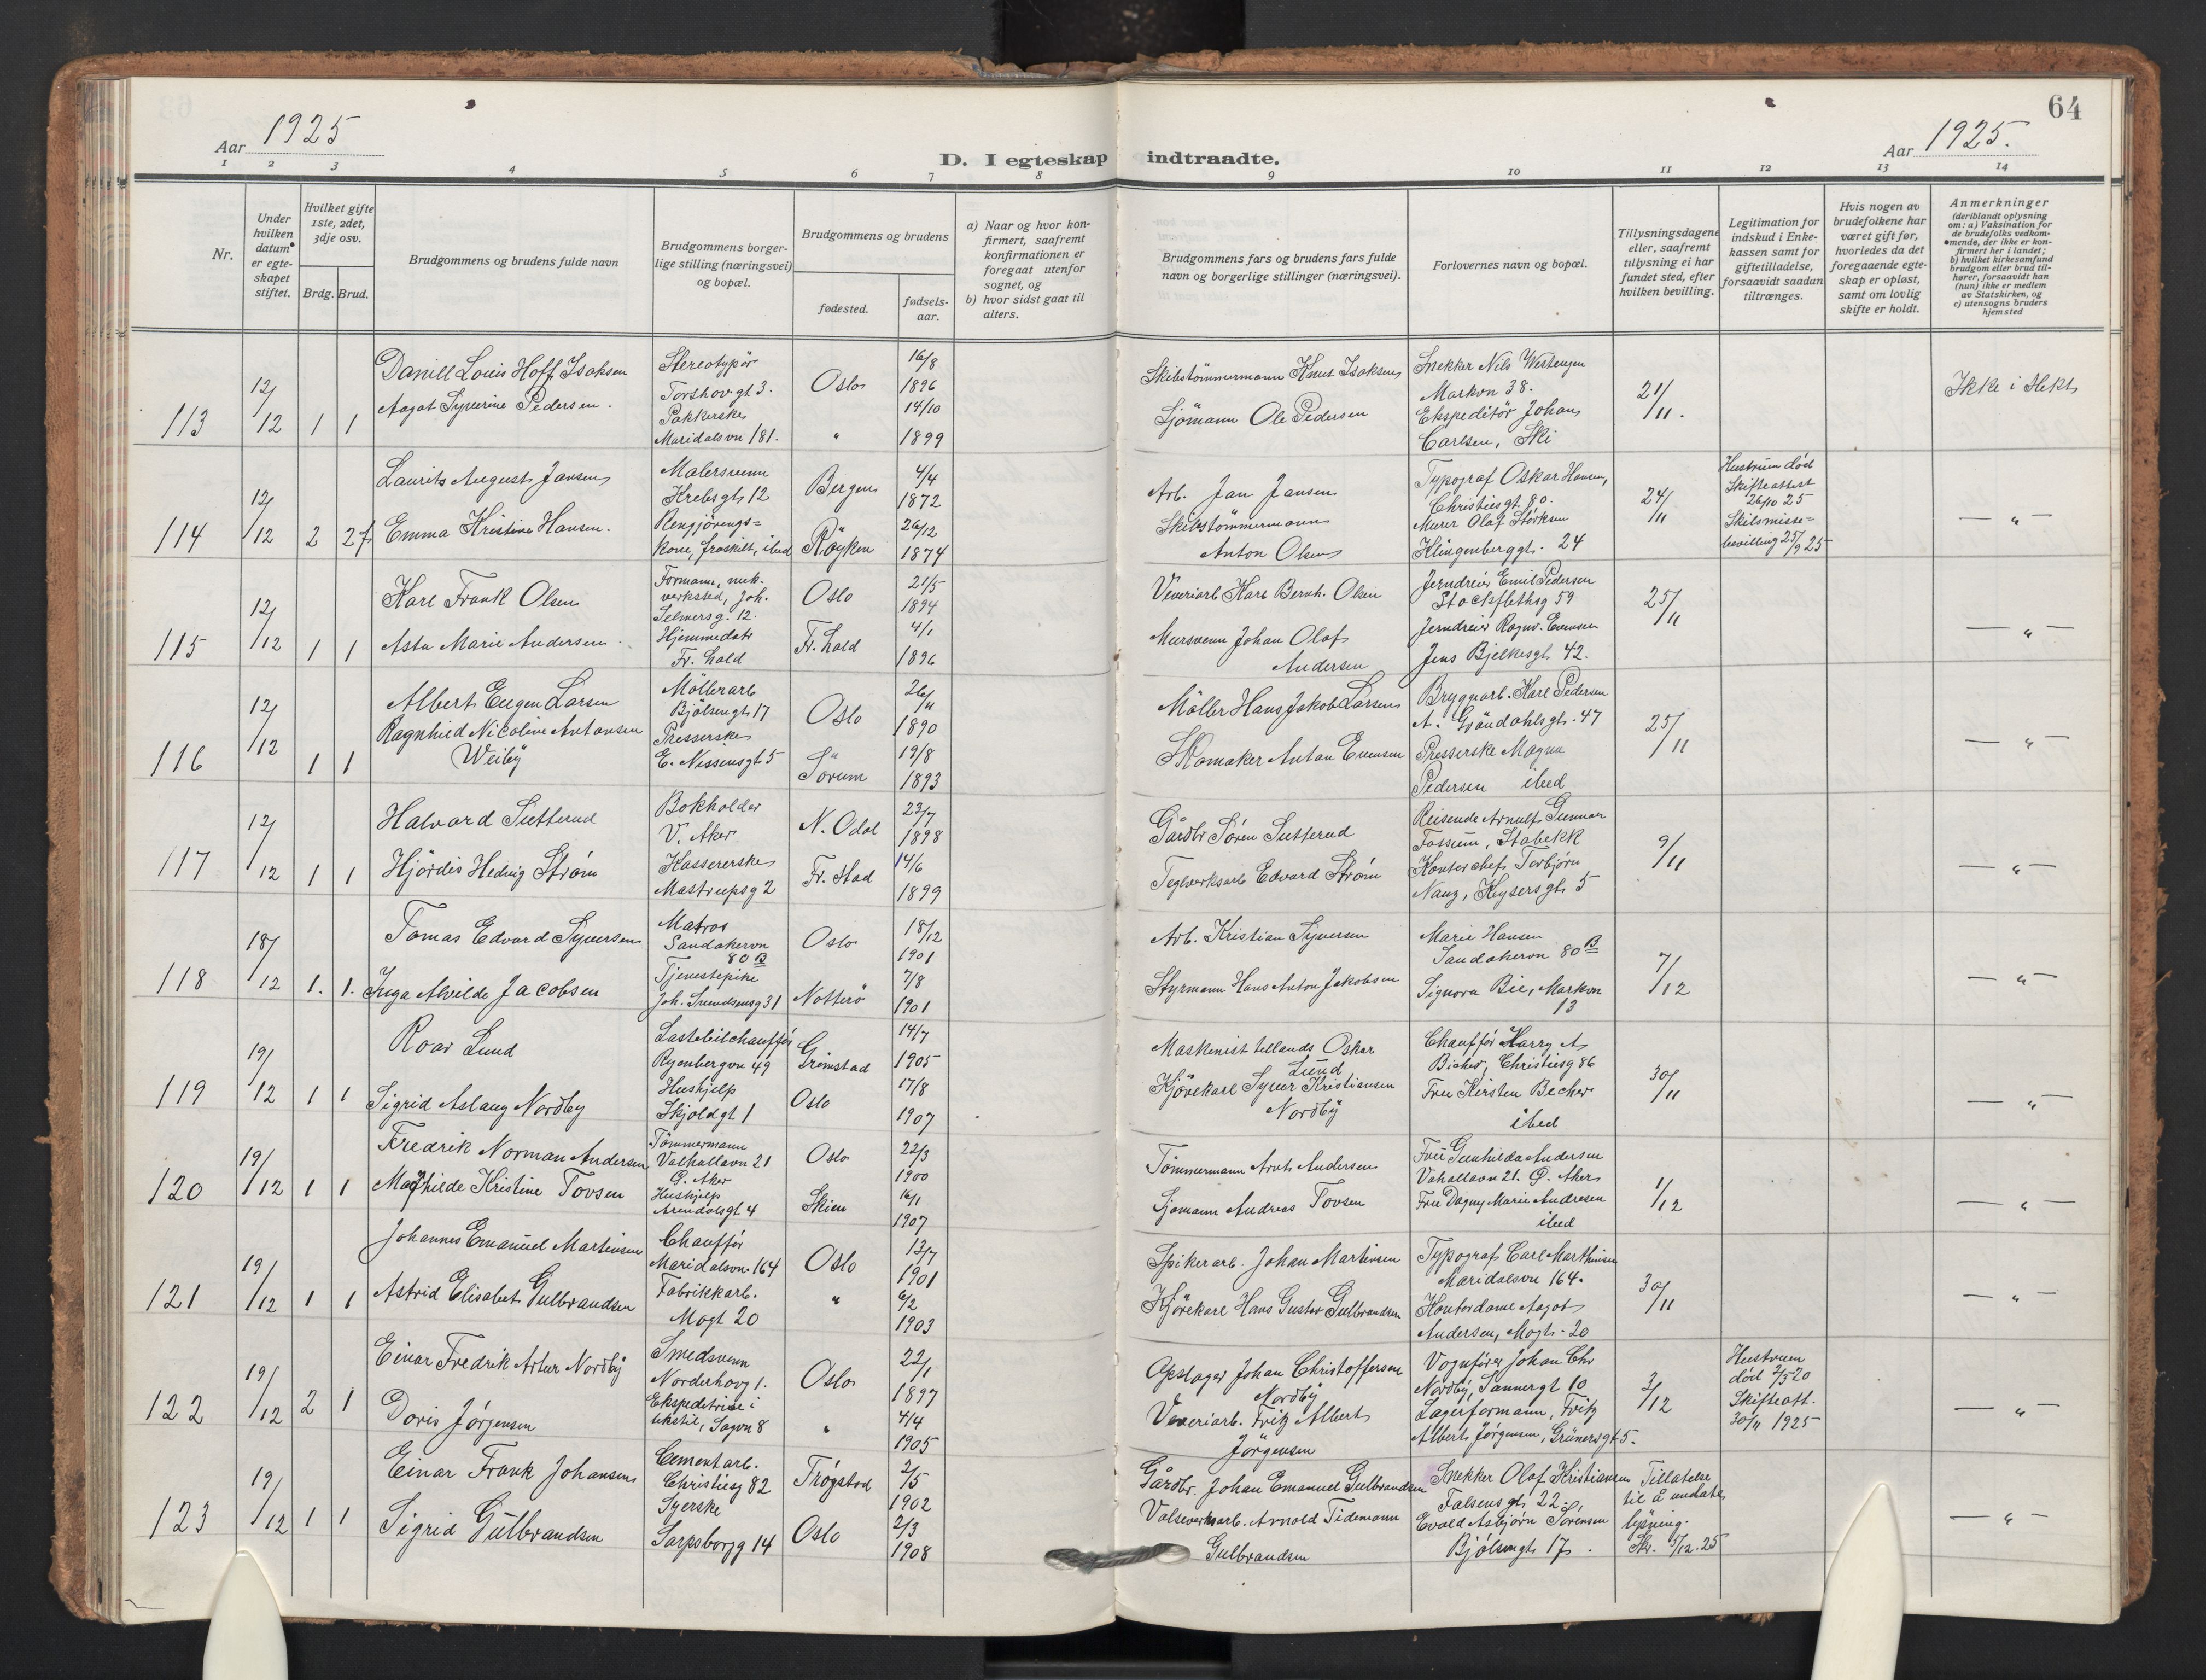 64
Aar 1925
D. I egteskap indtraadte.
Aar 1925.
1 2 3 4 5 6 7 8 9 10 11 12 13 14
Nr.
Under
hvilken
datum
er egte-
skapet
stiftet.
Hvilket gifte
1ste, 2det,
3dje osv.
Brdg. Brud.
Brudgommens og brudens fulde navn
Brudgommens borger-
lige stilling (næringsvei)
og bopæl.
Brudgommens og brudens
fødested.
fødsels-
aar.
a) Naar og hvor kon-
firmert, saafremt
konfirmationen er
foregaat utenfor
sognet, og
b) hvor sidst gaat til
alters.
Brudgommens fars og brudens fars fulde
navn og borgerlige stillinger (næringsvei).
Forlovernes navn og bopæl.
Tillysningsdagene
eller, saafremt
tillysning ei har
fundet sted, efter
hvilken bevilling.
Legitimation for
indskud i Enke-
kassen samt for
giftetilladelse,
forsaavidt saadan
tiltrænges.
Hvis nogen av
brudefolkene har
været gift før,
hvorledes da det
foregaaende egte-
skap er opløst,
samt om lovlig
skifte er holdt.
Anmerkninger
(deriblandt oplysning
om: a) Vaksination for
de brudefolks vedkom-
mende, der ikke er kon-
firmert her i landet;
b) hvilket kirkesamfund
brudgom eller brud til-
hører, forsaavidt han
(hun) ikke er medlem
av Statskirken, og
c) utensogns bruders
hjemsted
113
12/12
1 1
Daniel Louis Hoff Isaksen
Aagot Syverine Pedersen.
Stereotypør
Torshovgt 3.
Pakkerske
Maridalsvn 181.
Oslo
"
16/8
1896
14/10
1899
Skibstömmermann Knut Isaksen
Sjömann Ole Pedersen
Snekker Nils Westengen
Markvn 38.
Ekspeditör Johan
Carlsen, Ski
21/11.
Ikke i slekt
114
12/12
2 2f
Laurits August Jansen
Emma Kristine Hansen.
Malersvenn
Krebsgt 12
Rengjørings=
kone, fraskilt, ibed
Bergen
Röyken
4/4
1872
26/12
1874
Arb. Jan Jansen
Skibstömmermann
Anton Olsen
Typograf Oskar Hansen,
Christiesgt 80.
Murer Olaf Störksen
Klingenberggt. 24
24/11
Hustrum död
Skifteattest
26/10 25
Skilsmisse=
bevilling 25/9 25
— " —
115
12/12
1 1
Karl Frank Olsen
Asta Marie Andersen
Formann, mek.
verksted, Joh.
Selmersg. 12.
Hjemmedatr
Fr. hald
Oslo
Fr. hald
21/5
1894
4/1
1896
Veveriarb Karl Bernh. Olsen
Mursvenn Johan Olaf
Andersen
Jerndreier Emil Pedersen
Stockflethsg 59
Jerndreier Ragnv. Evensen
Jens Bjelkesgt 42.
25/11
— " —
116
12/12
1 1
Albert Eugen Larsen
Ragnhild Nicoline Antonsen
Weiby
Möllerarb
Bjölsengt 17
Presserske
E. Nissensgt 5
Oslo
Sörum
26/11
1890
19/8
1893
Möller Hans Jakob Larsen
Skomaker Anton Evensen
Bryggearb. Karl Pedersen
A. Gröndahlsgt. 47
Presserske Magna
Pedersen ibed
25/11
— " —
117
12/12
1 1
Halvard Sætterud
Hjördis Hedvig Strøm
Bokholder
V. Aker
Kassererske
Mastrupsg 2
N. Odal
Fr. Stad
23/7
1898
14/6
1899
Gårdbr Sören Sætterud
Teglverksarb Edvard Strøm
Reisende Arnulf Gunnar
Fossum, Stabekk
Kontorchef Torbjörn
Nanz, Keysersgt 5
9/11
— " —
118
18/12
1. 1.
Tomas Edvard Syversen
Inga Alvilde Jacobsen
Matros
Sandakervn
80 B
Tjenestepike
Joh. Svendsensg 31
Oslo
Nötterö
18/12
1901
7/8
1901
Arb. Kristian Syversen
Styrmann Hans Anton Jakobsen
Marie Hansen
Sandakervn 80 B
Signora Bie, Markvn
13
7/12
— " —
119
19/12
1 1
Roar Lund
Sigrid Aslaug Nordby
Lastebilchauffør
Ryenbergvn 49
Hushjelp
Skjoldgt 1
Grimstad
Oslo
14/7
1905
17/8
1907
Maskinist tillands Oskar
Lund
Kjörekarl Syver Kristiansen
Nordby
Chauffør Harry A
Becher, Christiesg 86
Fru Kirsten Becher
ibed
30/11
— " —
120
19/12
1 1
Fredrik Norman Andersen
Mathilde Kristine Tovsen
Tömmermann
Valhallavn 21
Ö. Aker
Hushjelp
Arendalsgt 4
Oslo
Skien
22/3
1900
16/1
1907
Tömmermann Arvt Andersen
Sjömann Andreas Tovsen
Frü Gunhilda Andersen
Vahallavn 21. Ö. Aker
Frü Dagny Marie Andresen
ibed
1/12
— " —
121
19/12
1 1
Johannes Emanuel Martinsen
Astrid Elisabet Gulbrandsen
Chauffør
Maridalsvn. 164
Fabrikkarb.
Mogt 20
Oslo
"
13/7
1901
6/2
1903
Spikerarb. Johan Martinsen
Kjörekarl Hans Gustav Gulbrandsen
Typograf Carl Marthinsen
Maridalsvn 164.
Kontordame Aagot
Andersen, Mogt. 20
30/11
— " —
122
19/12
2 1
Einar Fredrik Artur Nordby
Doris Jørgensen
Smedsvenn
Norderhovg 1.
Ekspeditrise i
tekstil, Sagvn 8
Oslo
"
22/1
1897
4/4
1905
Opslager Johan Christoffersen
Nordby
Veveriarb. Fritz Albert
Jörgensen
Vognfører Johan Chr
Nordby, Sannergt 10
Lagerformann, Fritz
Albert Jørgensen, Grünersgt 5.
3/12
Hustruen
död 2/5 20
Skifteatt.
30/11 1925
— " —
123
19/12
1 1
Einar Frank Johansen
Sigrid Gulbrandsen
Cementarb.
Christiesg 82
Syerske
Sarpsborgg 14
Trögstad
Oslo
2/5
1902
2/3
1908
Gårdbr. Johan Emanuel Gulbrandsen
Valseverksarb. Arnold Tidemann
Gulbrandsen
Snekker Olaf Kristiansen
Falsensgt 22,
Evald Asbjørn Sörensen
Bjölsengt 17.
Tillatelse
til å undlate
lysning.
Skr. 5/12.25
— " —